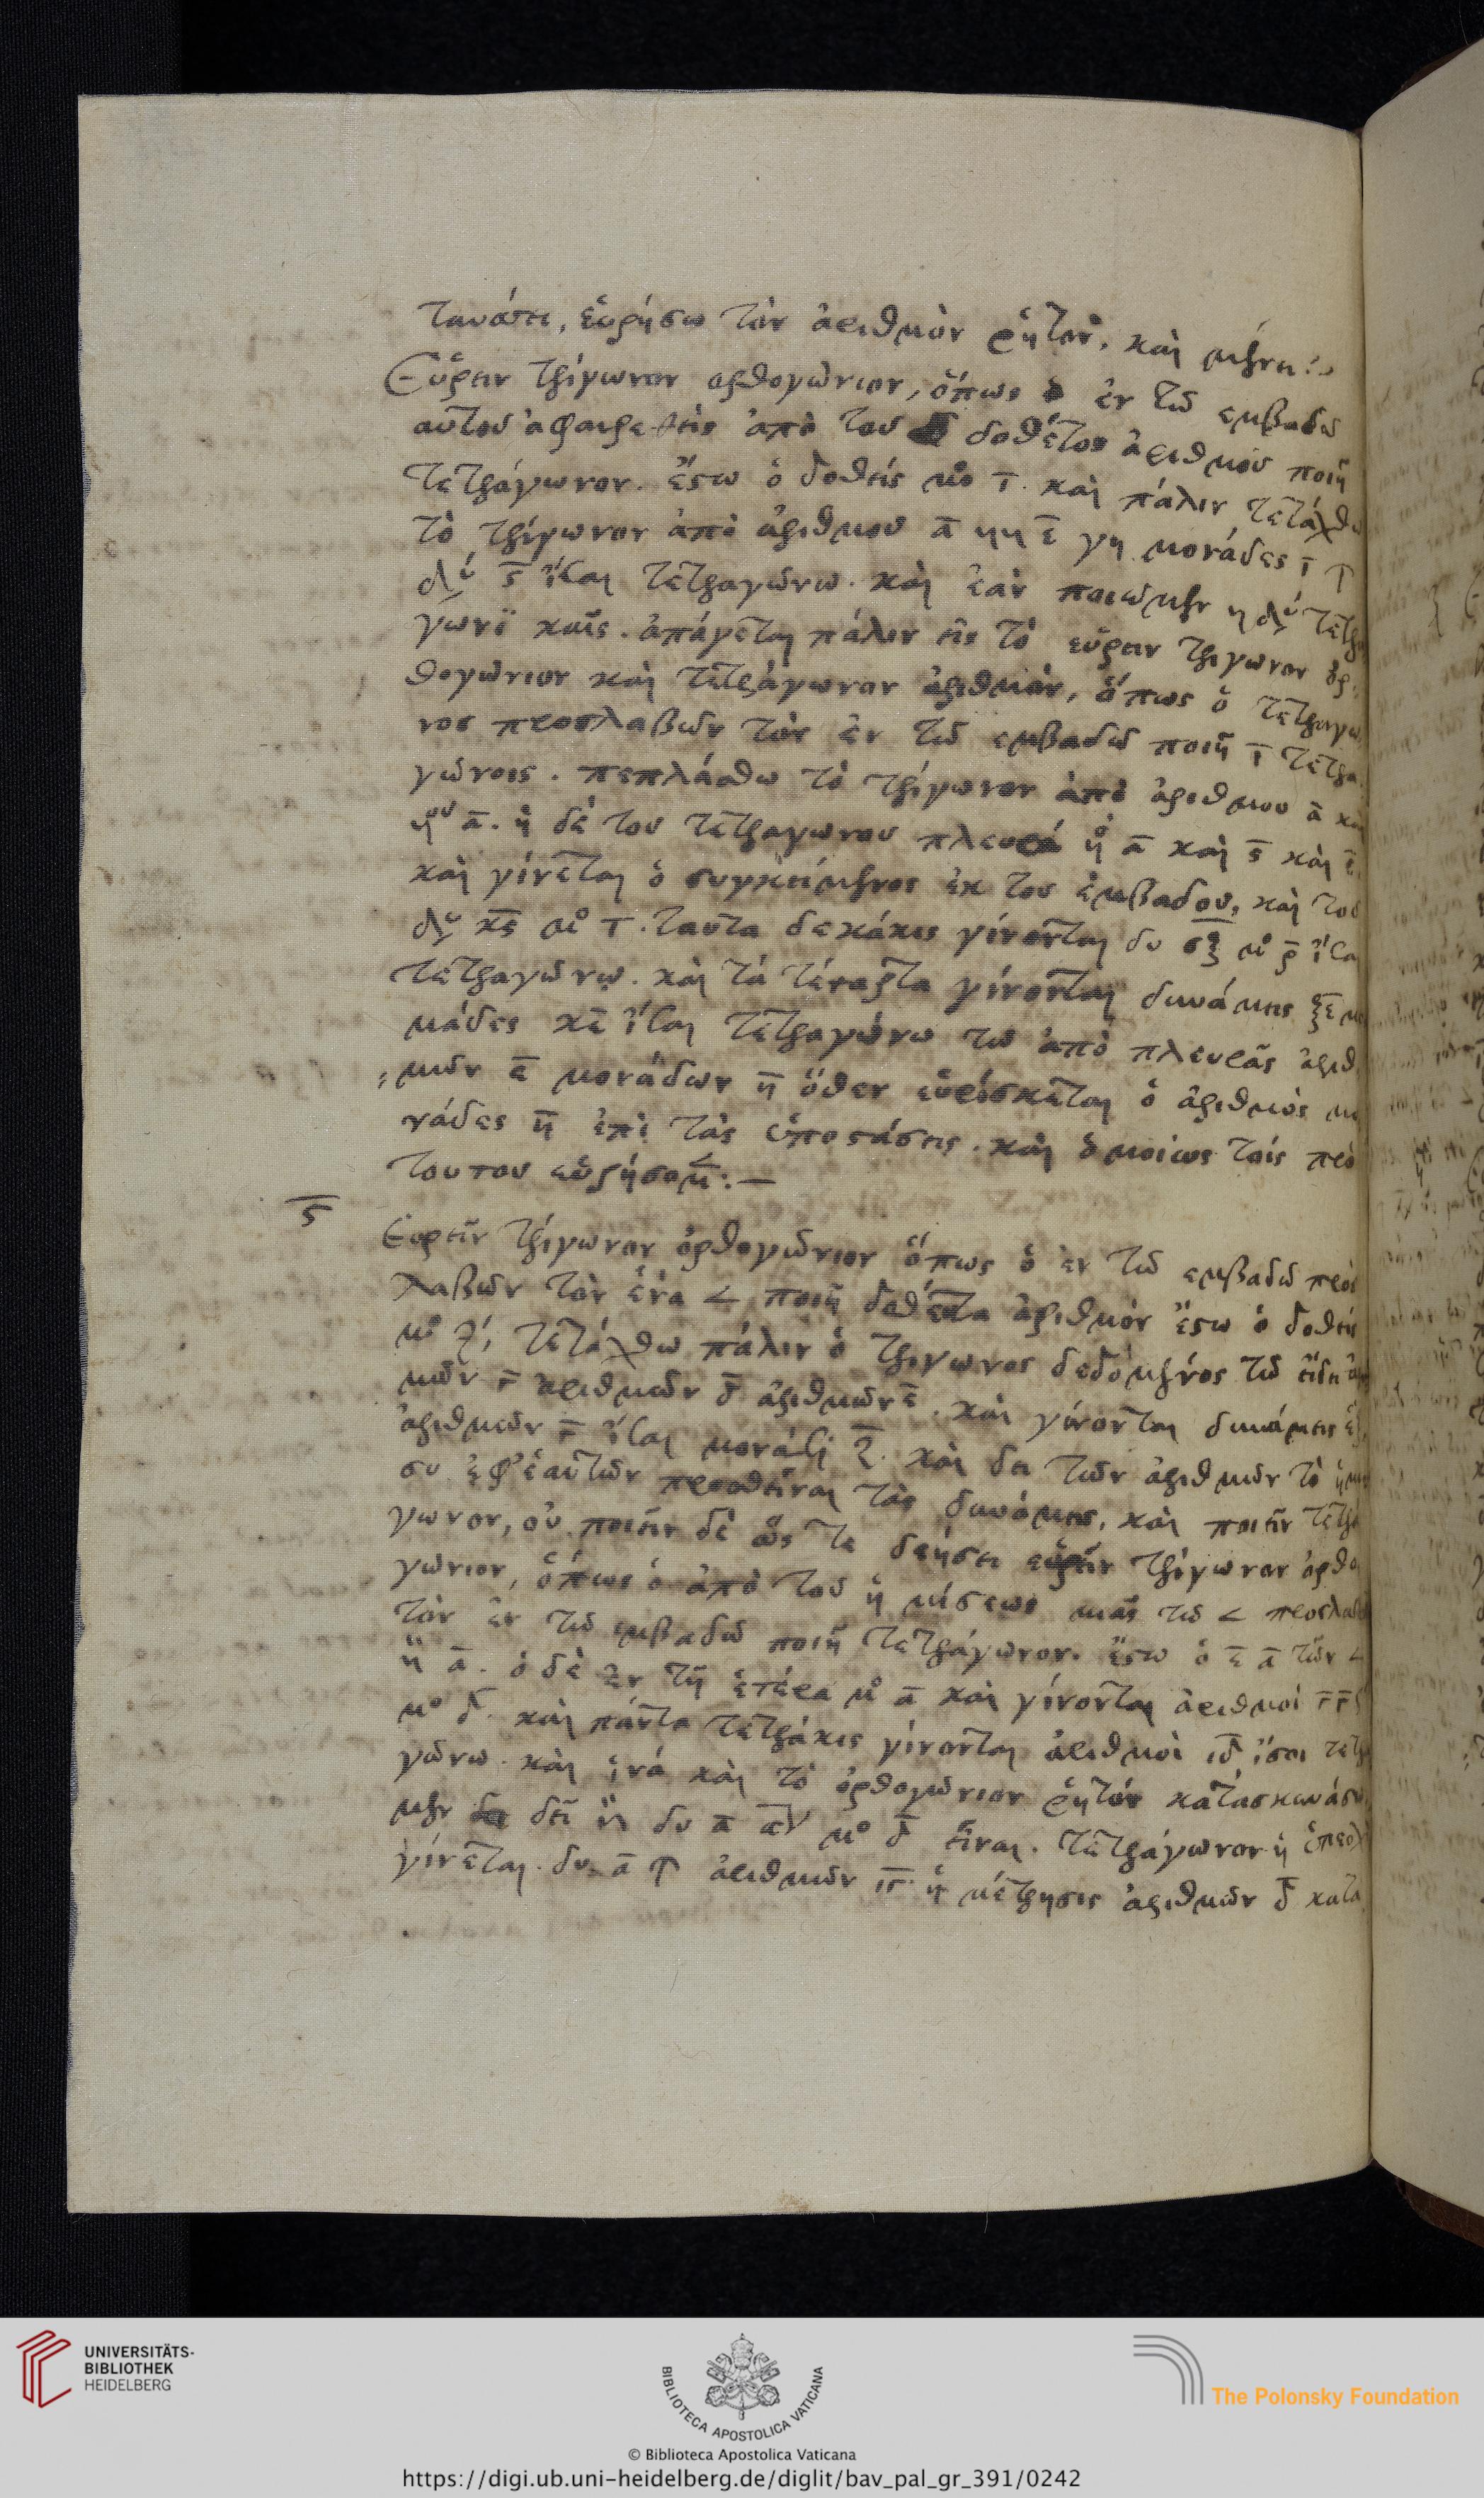 τανάπτι, εὑρήσω τὸν ἀριθμὸν ῥητὸν. καὶ μένει :~
Εὕρειν τρίγωνον ορθογώνιον, ὅπως ὁ ἐν τῶ εμβαδῶ
αὐτοῦ ἀφαιρεθεὶς ἀπὸ τοῦ δοθέτος ἀριθμοῦ ποιῆ
τετράγωνον. ἔστω ὁ δοθεὶς μο ι̅. καὶ πάλιν τετάχθω
τὸ τρίγωνον ἀπὸ ἀριθμου α̅ ε̅ γη μονάδες ι̅
δυ ϛ̅ ἴσαι τετραγώνω. καὶ ἐὰν ποιῶμεν
γωνϊ καῖς. ἀπάγεται πάλιν εἰς τὸ εὕρειν τρίγωνον ὀρ
θογώνιον καὶ τετράγωνον ἀριθμὸν, ὅπως ὁ τετραγω
νος προσλαβὼν τὸν ἐν τῶ εμβαδῶ ποιῆ ι̅ τετρα
γώνοις. πεπλάσθω τὸ τρίγωνον ἀπὸ ἀριθμου α̅ καὶ
α̅. ἡ δὲ του τετραγωνου πλευρὰ α̅ καὶ ϛ̅ καὶ ε̅.
καὶ γίνεται ὁ συγκείμενος ἐκ του ἐμβαδου, καὶ του
δυ κϛ̅ μο ι̅. ταῦτα δεκάκις γίνονται δυ σξ̅ μο ρ̅ ἴσα
τετραγώνω. καὶ τὰ τέταρτα γίνονται δυνάμεις ξε̅ μο
νάδες κε̅ ἴσαι τετραγώνω τῶ ἀπὸ πλευρᾶς ἀριθ
μῶν ε̅ μονάδων η̅ ὅθεν εὑρίσκεται ὁ ἀριθμὸς μο
νάδες η̅ ἐπὶ τὰς ὑποστάσεις. καὶ ὁμοίως τοῖς προ
τουτου εὑρήσομ̅ :—
ϛ̅
Ευρεῖν τρίγωνον ὀρθογώνιον ὅπως ὁ ἐν τῶ εμβαδῶ προσ
λαβὼν τὸν ἕνα < ποιῆ δοθέντα ἀριθμὸν ἔστω ὁ δοθεὶς
μο ζ, τετάχθω πάλιν ὁ τρίγωνος δεδομένος τῶ εἴδει ἀρ
μῶν γ̅ ἀριθμῶν δ̅ ἀριθμῶν ε̅. καὶ γίνονται δυνάμεις ἓξ
ἀριθμῶν γ̅ ἴσαι μονάσι ζ̅. καὶ δει τῶν ἀριθμῶν τὸ ἥμι
συ ἐφ' ἑαυτῶν προσθεῖναι τὰς δυνάμεις, καὶ ποιεῖν τετρα
γωνον, οὐ ποιεῖν δὲ ὥς τε δεήσει εὑρεῖν τρίγωνον ὀρθο
γώνιον, ὅπως ὁ ἀπὸ τοῦ ἡμίσεως μιᾶς τῶ < προσλαβὼν
τὸν ἐν τῶ εμβαδῶ ποιῆ τετράγωνον. ἔστω ὁ ε̅ α̅ τῶν <
α̅. ὁ δὲ ἐν τῆ ἑτέρα μο α̅ καὶ γίνονται ἀριθμοὶ
μο δ. καὶ πάντα τετράκις γίνονται ἀριθμοὶ ιδ̅ ἴσοι τετρα
γώνω. καὶ ἱνὰ καὶ τὸ ὀρθογώνιον ῥητὸν κατασκευάσω
μεν δεῖ δυ α̅ μο δ̅ εἶναι. τετράγωνον ἡ ὑπερο
γίνεται. δυ α̅ ἀριθμῶν ιγ̅ ἡ μέτρησις ἀριθμῶν δ̅ κατα
UNIVERSITÄTS-
BIBLIOTHEK
HEIDELBERG
BIBLIOTECA APOSTOLICA VATICANA
The Polonsky Foundation
© Biblioteca Apostolica Vaticana
https://digi.ub.uni-heidelberg.de/diglit/bav_pal_gr_391/0242